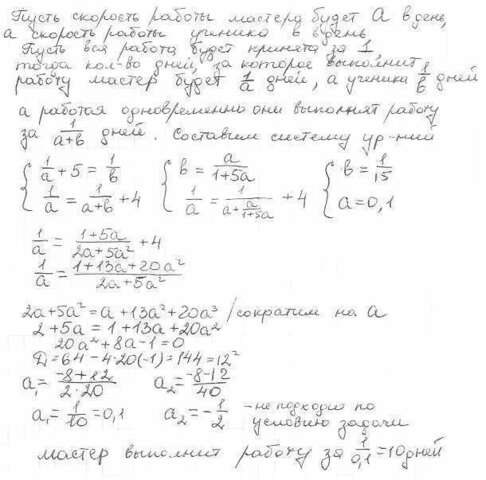 Пусть скорость работы мастера будет a в день,
а скорость работы ученика b в день
Пусть вся работа будет принята за 1
тогда кол-во дней, за которое выполнит
работу мастер будет 1/a дней, а ученика 1/b дней
а работая одновременно они выполнят работу
за 1/(a+b) дней. Составим систему ур-ний
{ 1/a + 5 = 1/b { b = a/(1+5a) { b = 1/15
{ 1/a = 1/(a+b) + 4 { 1/a = 1/(a + a/(1+5a)) + 4 { a = 0,1
1/a = (1+5a)/(2a+5a²) + 4
1/a = (1+13a+20a²)/(2a+5a²)
2a+5a² = a+13a²+20a³ /сократим на a
2+5a = 1+13a+20a²
20a²+8a-1=0
D=64-4·20(-1)=144=12²
a₁ = (-8+12)/(2·20) a₂ = (-8-12)/40
a₁ = 1/10 = 0,1 a₂ = -1/2 - не подходит по
условию задачи
мастер выполнит работу за 1/0,1 = 10 дней